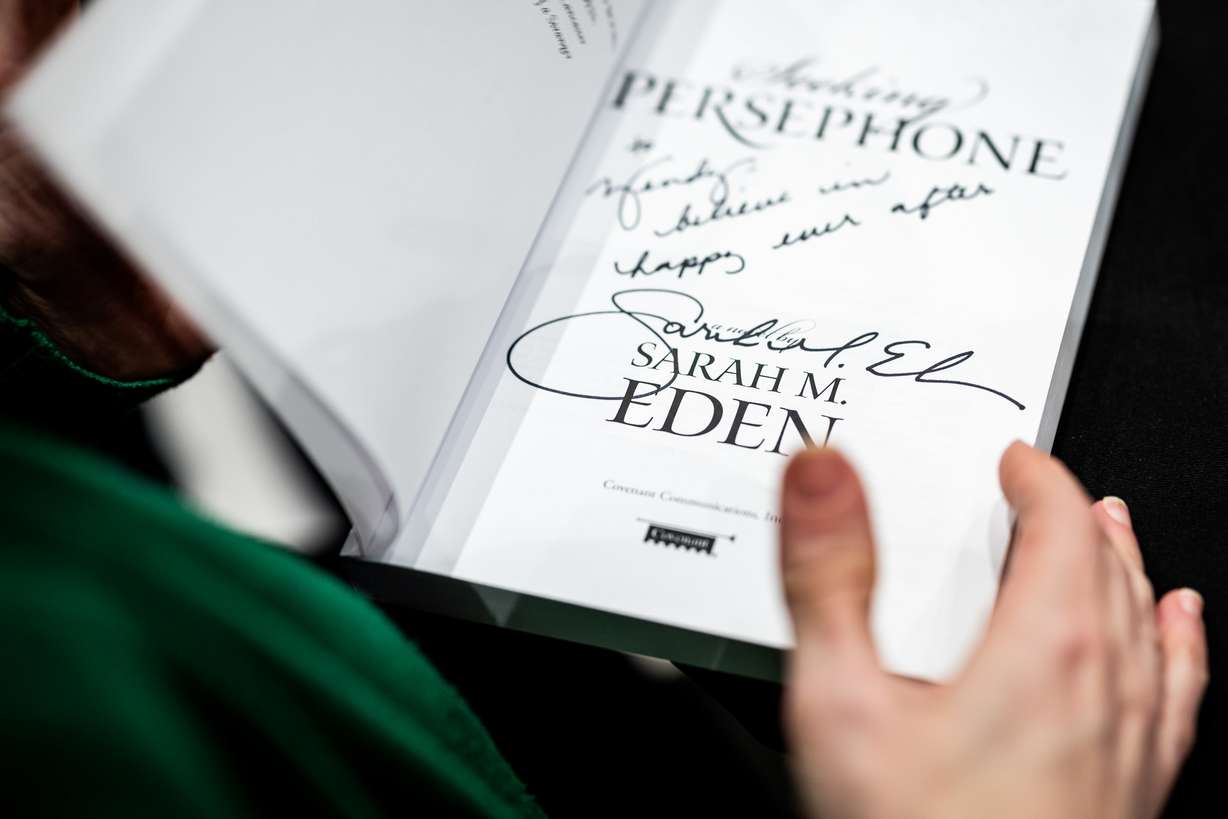 Seeking
PERSEPHONE
Wendy,
believe in
happy ever after
a novel by
SARAH M.
EDEN
Covenant Communications, Inc
Covenant